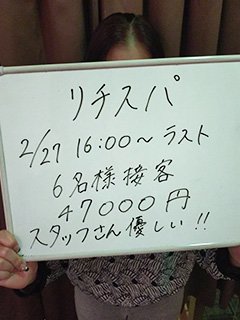 リチスパ
2/27 16:00～ラスト
6名様接客
47000円
スタッフさん優しい!!